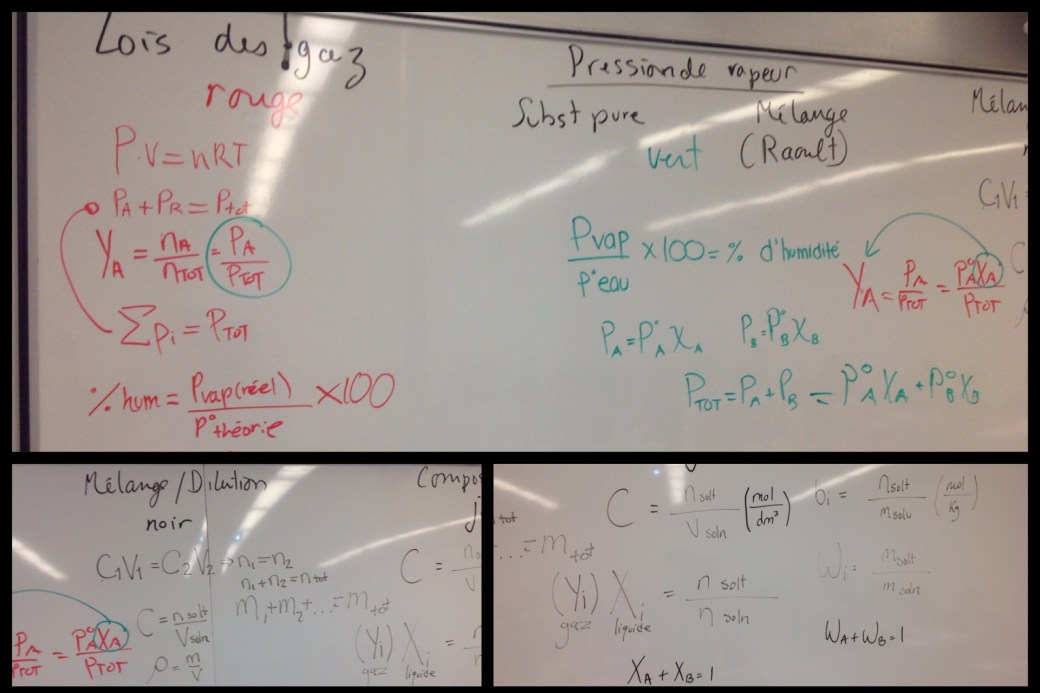 Lois des gaz
rouge
P.V=nRT
PA+PR=Ptot
YA = nA/nTOT = PA/PTOT
∑pi = PTOT
% hum = Pvap(réel)/P°théorie ×100
Pression de vapeur
Subst pure
Mélange
vert (Raoult)
Pvap/P°eau ×100=% d'humidité
YA = PA/PTOT = P°AXA/PTOT
PA=P°AXA PB=P°BXB
PTOT=PA+PB = P°AXA+P°BXB
Mélan
C1V1=
C
Mélange/Dilution
noir
C1V1=C2V2 → n1=n2
n1+n2=ntot
m1+m2+...=mtot
C = nsolt/Vsoln
ρ = m/V
PA/PTOT = P°AXA/PTOT
Compos
j
C = ns/V
(Yi) Xi = n/n
gaz liquide
tot
...=mtot
C = nsolt/Vsoln (mol/dm³)
bi = nsolt/msolv (mol/kg)
(Yi) Xi = nsolt/nsoln
gaz liquide
Wi = msolt/msoln
WA+WB=1
XA+XB=1